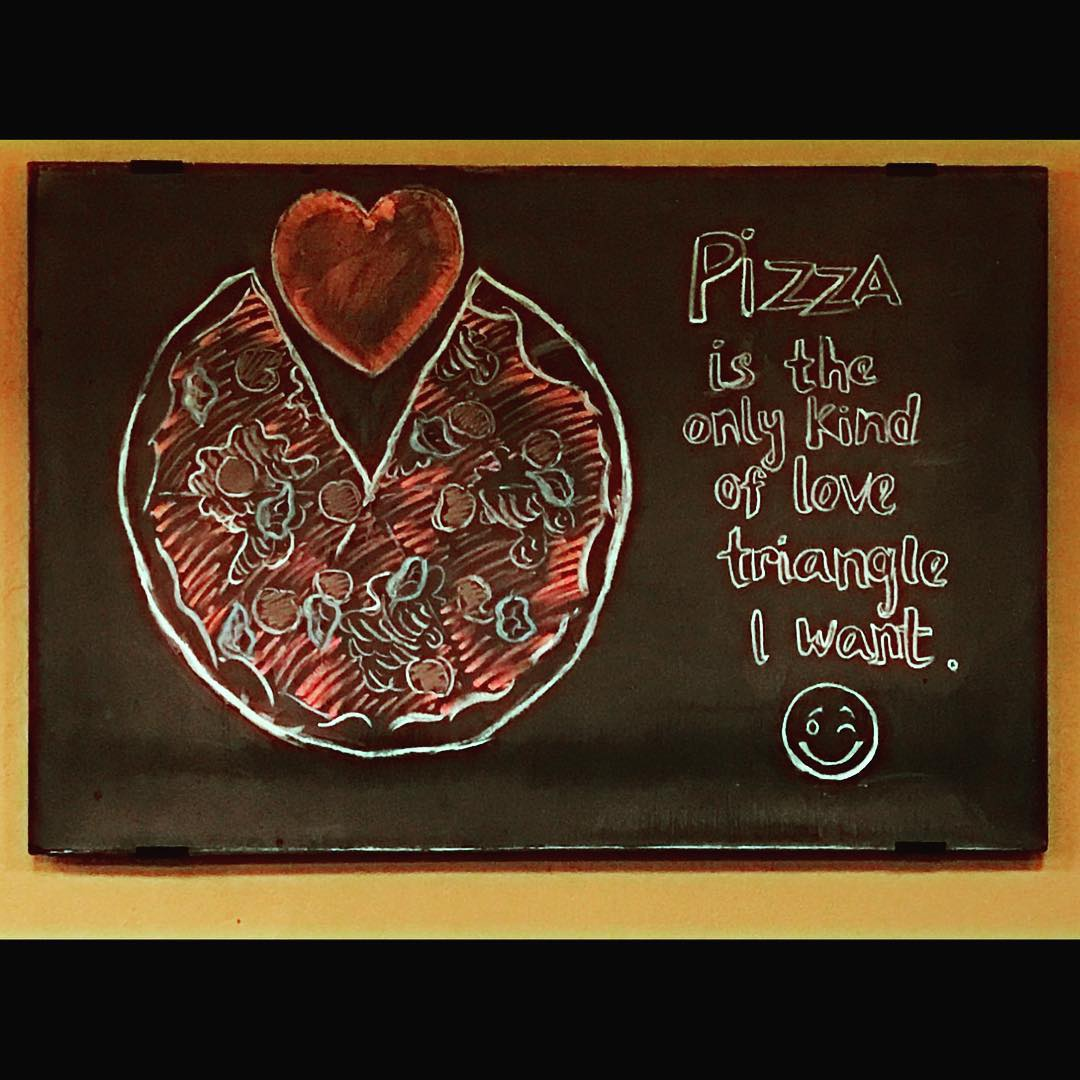 PiZZA
is the
only kind
of love
triangle
I want.